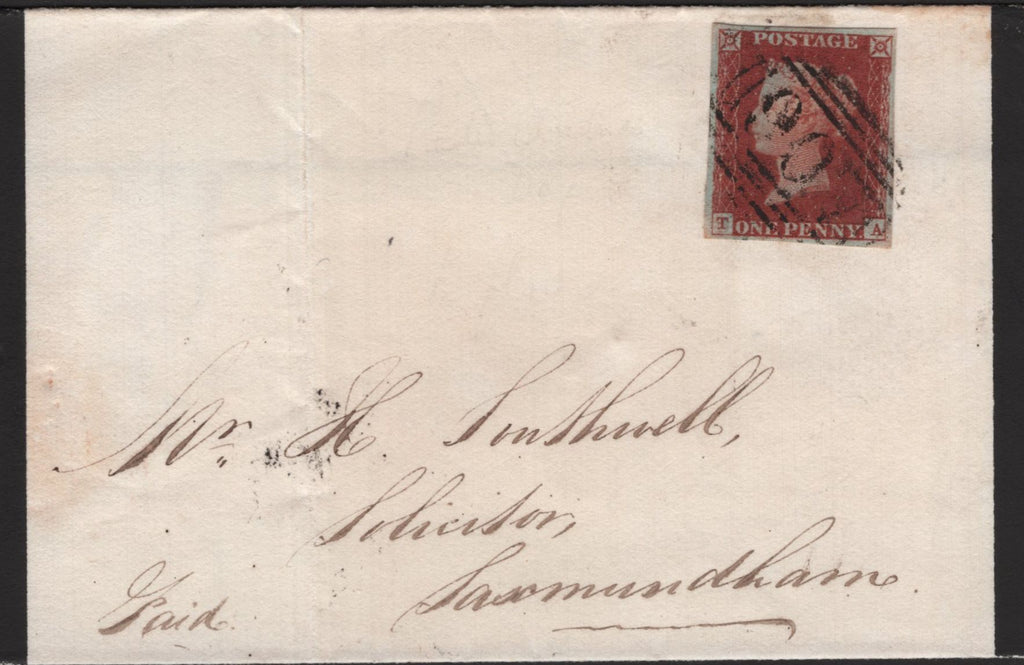 POSTAGE
T ONE PENNY. A
Mr. H. Southwell,
Solicitor,
Saxmundham
Paid